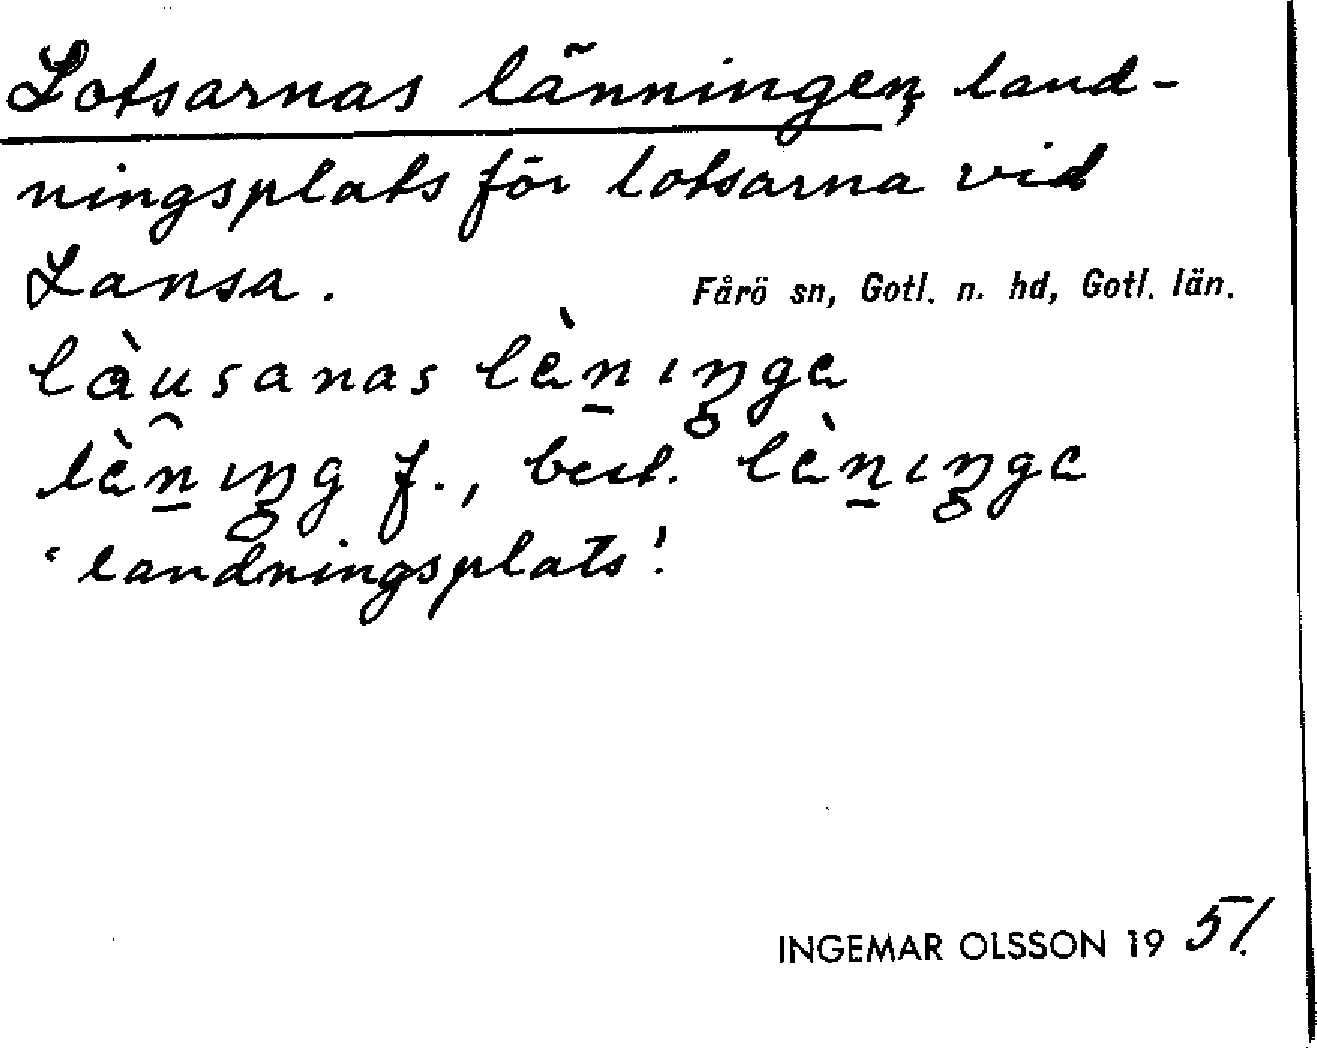 Lotsarnas länningen, land-
ningsplats för lotsarna vid
Lansa.
Fårö sn, Gotl. n. hd, Gotl. län.
làu̯sanas lèn̠ıŋ̥ge
lèn̠ıŋ̥g f., best. lèn̠ıŋ̥ge
‘landningsplats’.
INGEMAR OLSSON 1951.